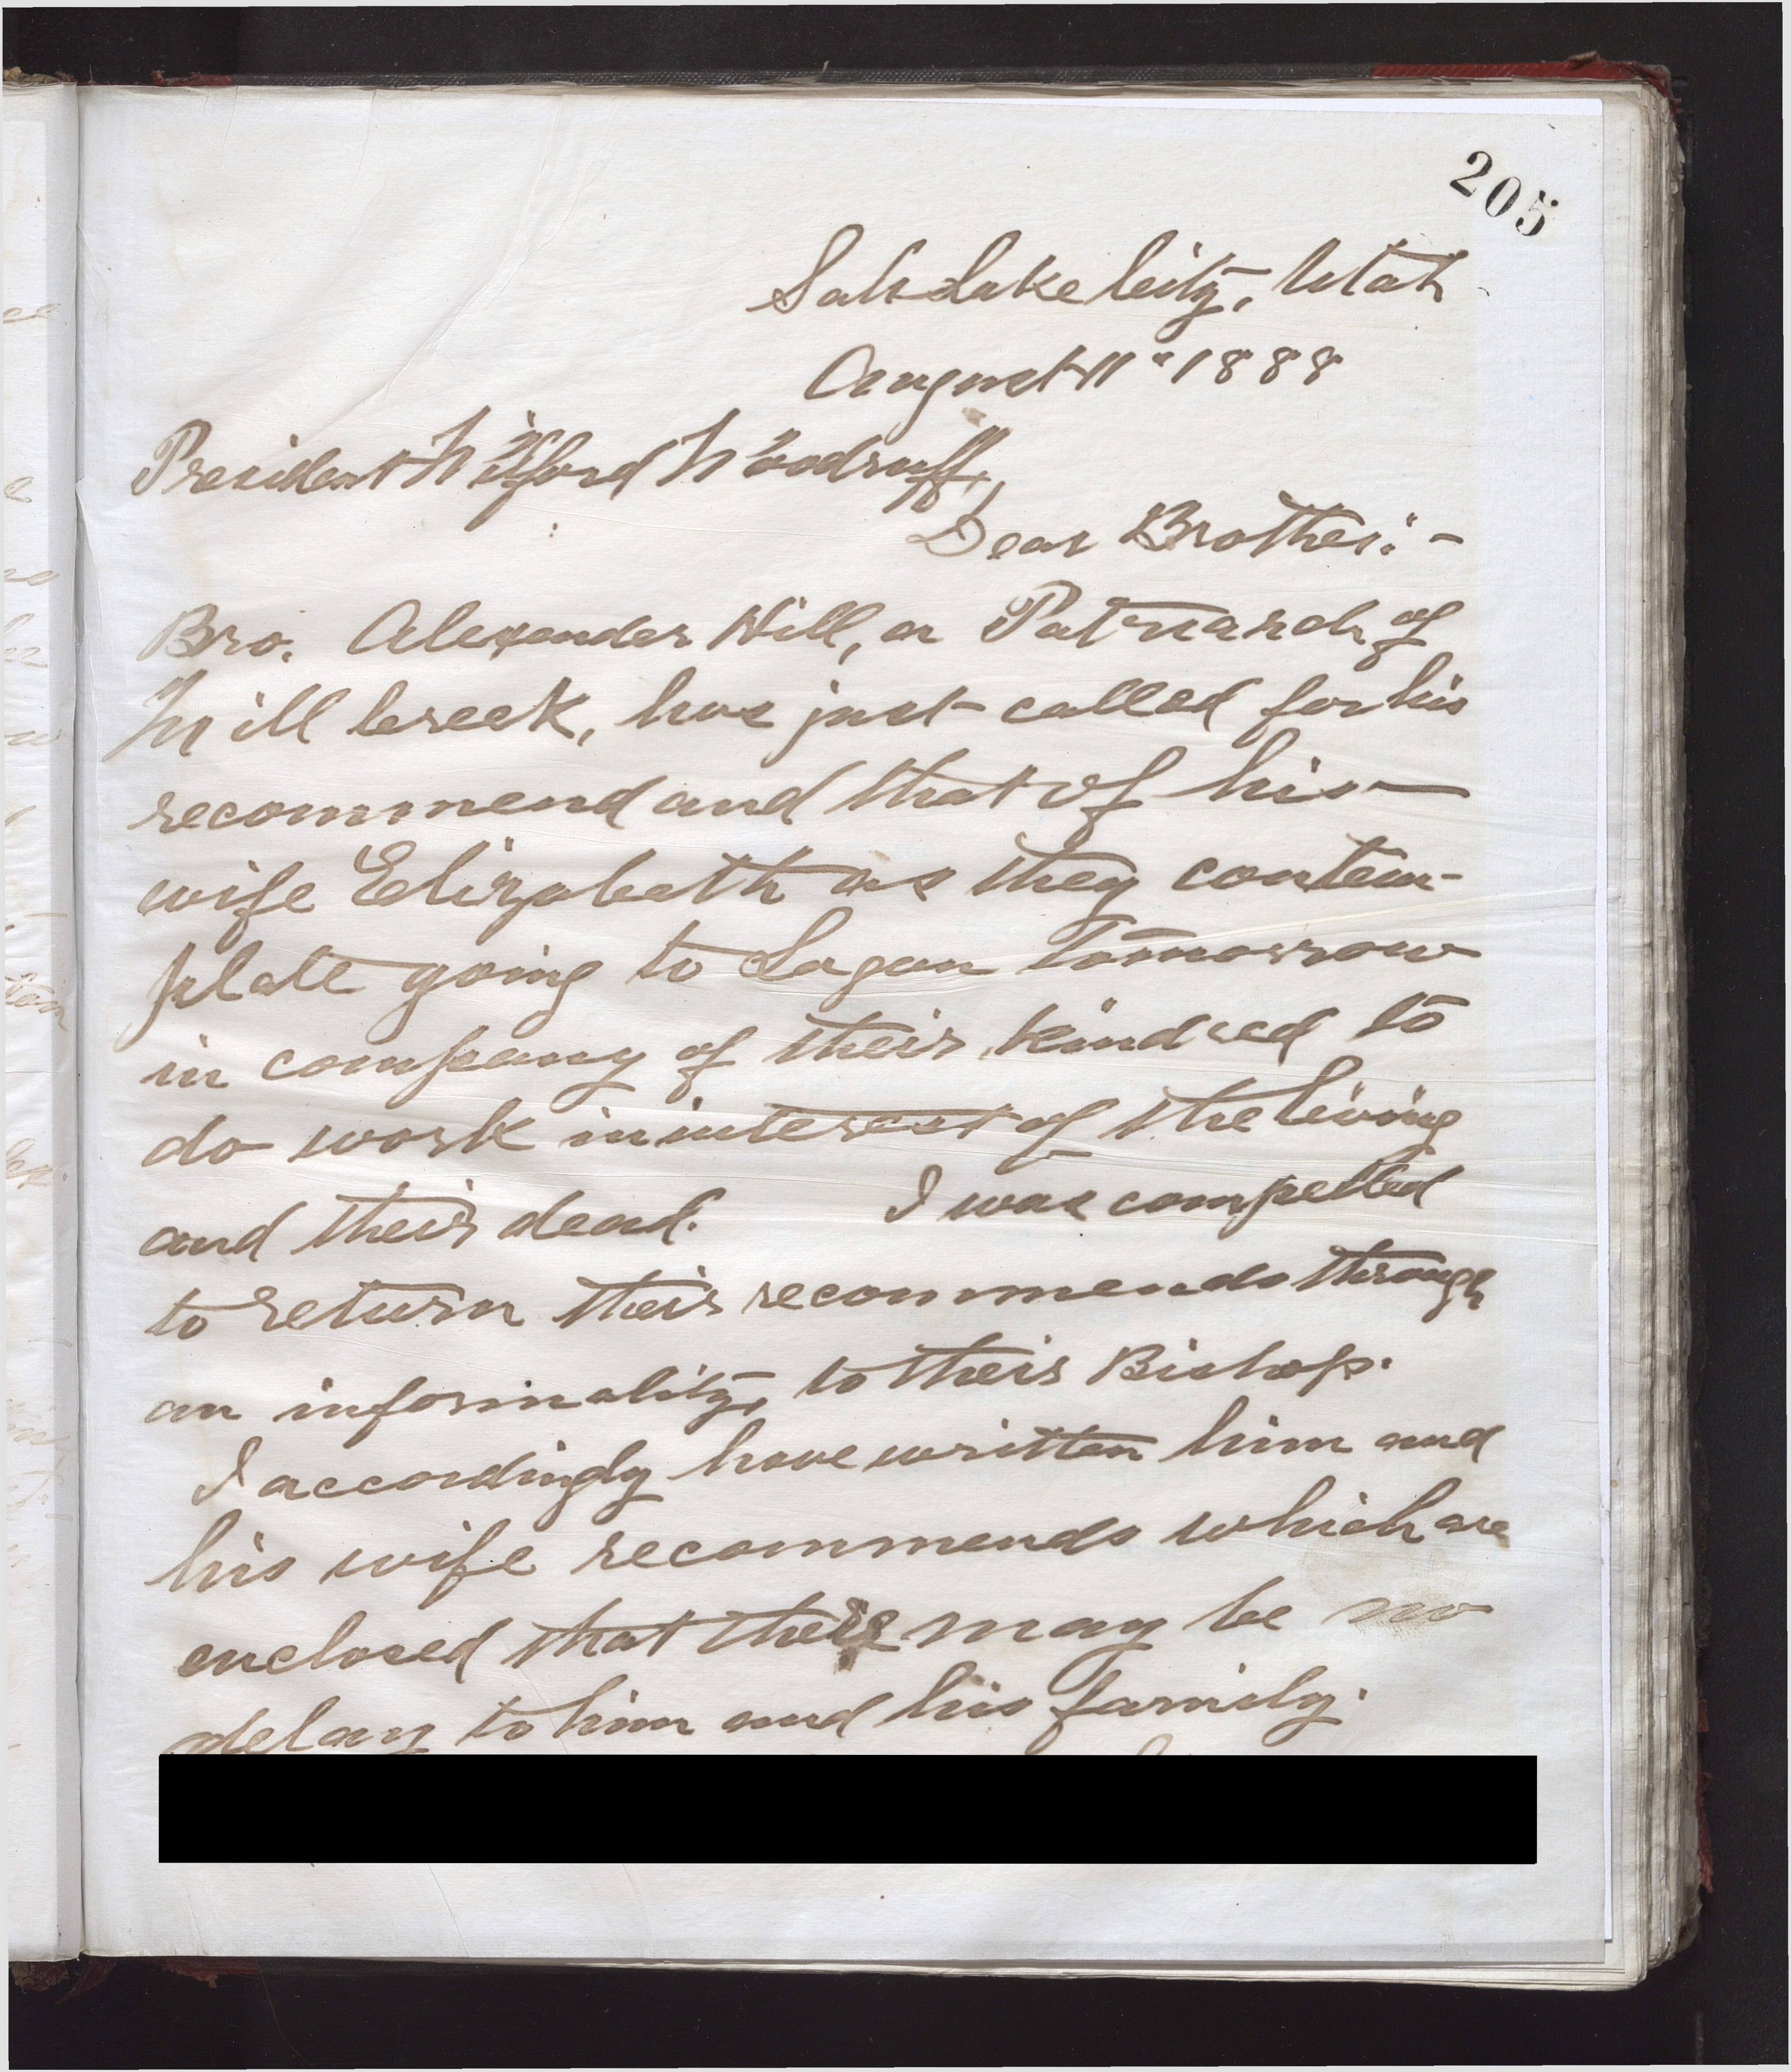 205
Salt Lake City, Utah
August 11" 1888
President Wilford Woodruff,
Dear Brother:-
Bro. Alexander Hill, a Patriarch of
Mill Creek, has just called for his
recommend and that of his
wife Elizabeth as they contem-
plate going to Logan tomorrow
in company of their kindred to
do work in interest of the living
and their dead. I was compelled
to return their recommends through
an informality, to their Bishop.
I accordingly have written him and
his wife recommends which are
enclosed that there may be no
delay to him and his family.